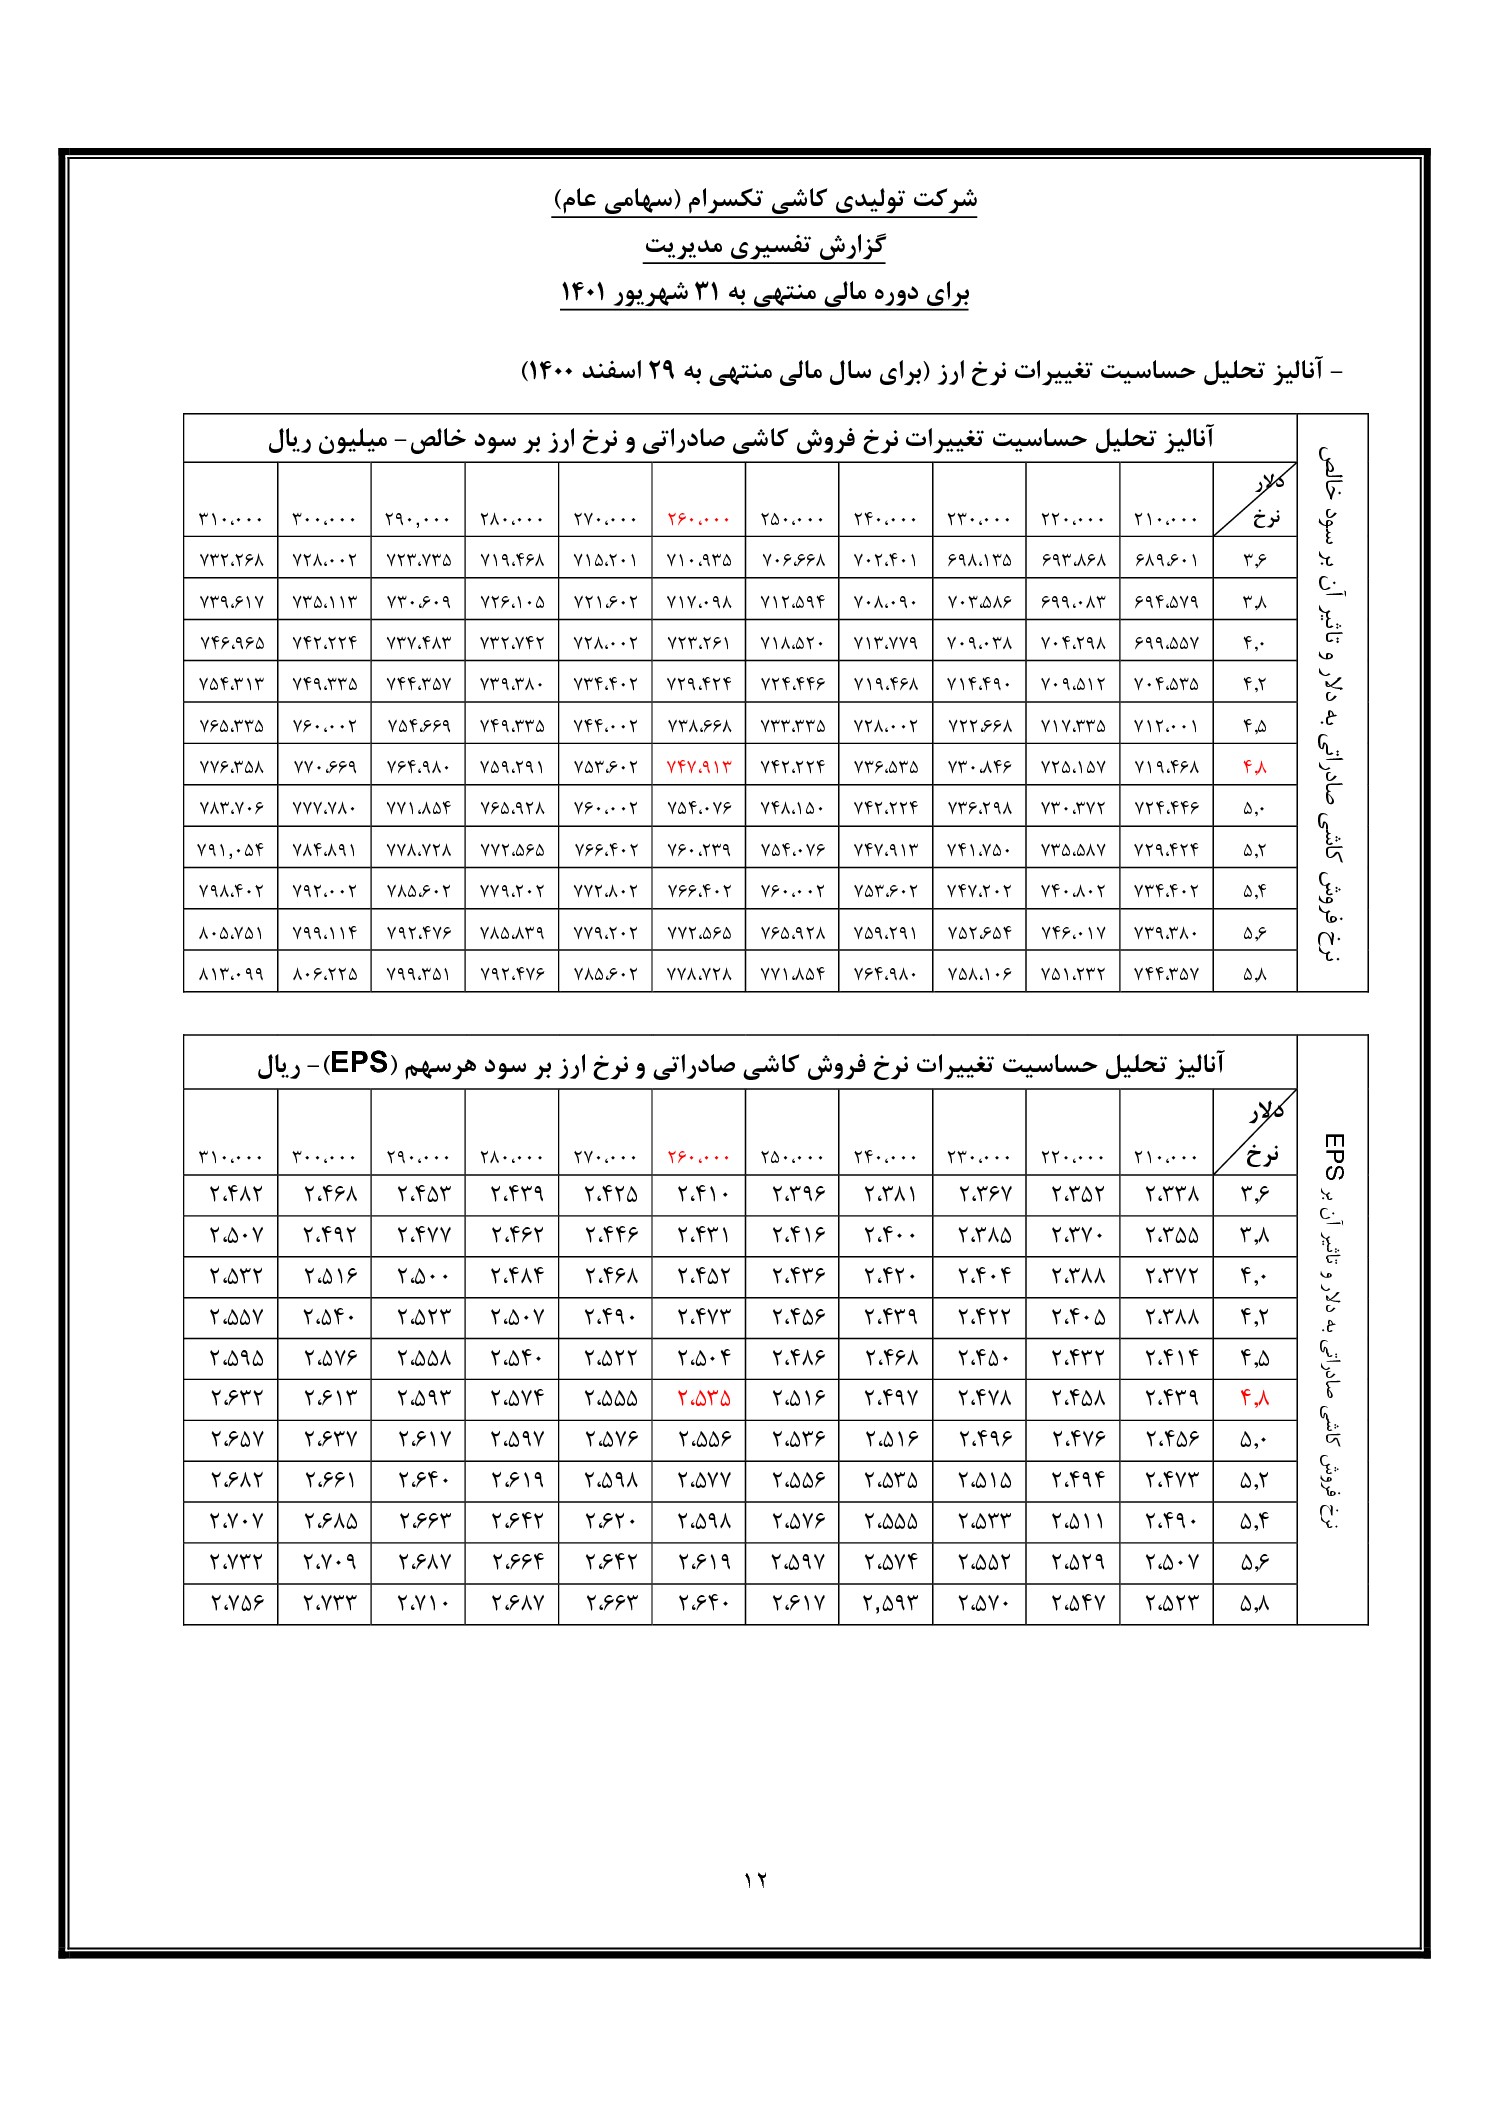 شرکت تولیدی کاشی تکسرام (سهامی عام)
گزارش تفسیری مدیریت
برای دوره مالی منتهی به ۳۱ شهریور ۱۴۰۱
- آنالیز تحلیل حساسیت تغییرات نرخ ارز (برای سال مالی منتهی به ۲۹ اسفند ۱۴۰۰)
نرخ فروش کاشی صادراتی به دلار و تاثیر آن بر سود خالص
آنالیز تحلیل حساسیت تغییرات نرخ فروش کاشی صادراتی و نرخ ارز بر سود خالص- میلیون ریال
دلار
نرخ ۲۱۰،۰۰۰ ۲۲۰،۰۰۰ ۲۳۰،۰۰۰ ۲۴۰،۰۰۰ ۲۵۰،۰۰۰ ۲۶۰،۰۰۰ ۲۷۰،۰۰۰ ۲۸۰،۰۰۰ ۲۹۰,۰۰۰ ۳۰۰،۰۰۰ ۳۱۰،۰۰۰
۳٫۶ ۶۸۹،۶۰۱ ۶۹۳،۸۶۸ ۶۹۸،۱۳۵ ۷۰۲،۴۰۱ ۷۰۶،۶۶۸ ۷۱۰،۹۳۵ ۷۱۵،۲۰۱ ۷۱۹،۴۶۸ ۷۲۳،۷۳۵ ۷۲۸،۰۰۲ ۷۳۲،۲۶۸
۳٫۸ ۶۹۴،۵۷۹ ۶۹۹،۰۸۳ ۷۰۳،۵۸۶ ۷۰۸،۰۹۰ ۷۱۲،۵۹۴ ۷۱۷،۰۹۸ ۷۲۱،۶۰۲ ۷۲۶،۱۰۵ ۷۳۰،۶۰۹ ۷۳۵،۱۱۳ ۷۳۹،۶۱۷
۴٫۰ ۶۹۹،۵۵۷ ۷۰۴،۲۹۸ ۷۰۹،۰۳۸ ۷۱۳،۷۷۹ ۷۱۸،۵۲۰ ۷۲۳،۲۶۱ ۷۲۸،۰۰۲ ۷۳۲،۷۴۲ ۷۳۷،۴۸۳ ۷۴۲،۲۲۴ ۷۴۶،۹۶۵
۴٫۲ ۷۰۴،۵۳۵ ۷۰۹،۵۱۲ ۷۱۴،۴۹۰ ۷۱۹،۴۶۸ ۷۲۴،۴۴۶ ۷۲۹،۴۲۴ ۷۳۴،۴۰۲ ۷۳۹،۳۸۰ ۷۴۴،۳۵۷ ۷۴۹،۳۳۵ ۷۵۴،۳۱۳
۴٫۵ ۷۱۲،۰۰۱ ۷۱۷،۳۳۵ ۷۲۲،۶۶۸ ۷۲۸،۰۰۲ ۷۳۳،۳۳۵ ۷۳۸،۶۶۸ ۷۴۴،۰۰۲ ۷۴۹،۳۳۵ ۷۵۴،۶۶۹ ۷۶۰،۰۰۲ ۷۶۵،۳۳۵
۴٫۸ ۷۱۹،۴۶۸ ۷۲۵،۱۵۷ ۷۳۰،۸۴۶ ۷۳۶،۵۳۵ ۷۴۲،۲۲۴ ۷۴۷،۹۱۳ ۷۵۳،۶۰۲ ۷۵۹،۲۹۱ ۷۶۴،۹۸۰ ۷۷۰،۶۶۹ ۷۷۶،۳۵۸
۵٫۰ ۷۲۴،۴۴۶ ۷۳۰،۳۷۲ ۷۳۶،۲۹۸ ۷۴۲،۲۲۴ ۷۴۸،۱۵۰ ۷۵۴،۰۷۶ ۷۶۰،۰۰۲ ۷۶۵،۹۲۸ ۷۷۱،۸۵۴ ۷۷۷،۷۸۰ ۷۸۳،۷۰۶
۵٫۲ ۷۲۹،۴۲۴ ۷۳۵،۵۸۷ ۷۴۱،۷۵۰ ۷۴۷،۹۱۳ ۷۵۴،۰۷۶ ۷۶۰،۲۳۹ ۷۶۶،۴۰۲ ۷۷۲،۵۶۵ ۷۷۸،۷۲۸ ۷۸۴،۸۹۱ ۷۹۱,۰۵۴
۵٫۴ ۷۳۴،۴۰۲ ۷۴۰،۸۰۲ ۷۴۷،۲۰۲ ۷۵۳،۶۰۲ ۷۶۰،۰۰۲ ۷۶۶،۴۰۲ ۷۷۲،۸۰۲ ۷۷۹،۲۰۲ ۷۸۵،۶۰۲ ۷۹۲،۰۰۲ ۷۹۸،۴۰۲
۵٫۶ ۷۳۹،۳۸۰ ۷۴۶،۰۱۷ ۷۵۲،۶۵۴ ۷۵۹،۲۹۱ ۷۶۵،۹۲۸ ۷۷۲،۵۶۵ ۷۷۹،۲۰۲ ۷۸۵،۸۳۹ ۷۹۲،۴۷۶ ۷۹۹،۱۱۴ ۸۰۵،۷۵۱
۵٫۸ ۷۴۴،۳۵۷ ۷۵۱،۲۳۲ ۷۵۸،۱۰۶ ۷۶۴،۹۸۰ ۷۷۱،۸۵۴ ۷۷۸،۷۲۸ ۷۸۵،۶۰۲ ۷۹۲،۴۷۶ ۷۹۹،۳۵۱ ۸۰۶،۲۲۵ ۸۱۳،۰۹۹
نرخ فروش کاشی صادراتی به دلار و تاثیر آن بر EPS
آنالیز تحلیل حساسیت تغییرات نرخ فروش کاشی صادراتی و نرخ ارز بر سود هرسهم (EPS)- ریال
دلار
نرخ ۲۱۰،۰۰۰ ۲۲۰،۰۰۰ ۲۳۰،۰۰۰ ۲۴۰،۰۰۰ ۲۵۰،۰۰۰ ۲۶۰،۰۰۰ ۲۷۰،۰۰۰ ۲۸۰،۰۰۰ ۲۹۰،۰۰۰ ۳۰۰،۰۰۰ ۳۱۰،۰۰۰
۳٫۶ ۲،۳۳۸ ۲،۳۵۲ ۲،۳۶۷ ۲،۳۸۱ ۲،۳۹۶ ۲،۴۱۰ ۲،۴۲۵ ۲،۴۳۹ ۲،۴۵۳ ۲،۴۶۸ ۲،۴۸۲
۳٫۸ ۲،۳۵۵ ۲،۳۷۰ ۲،۳۸۵ ۲،۴۰۰ ۲،۴۱۶ ۲،۴۳۱ ۲،۴۴۶ ۲،۴۶۲ ۲،۴۷۷ ۲،۴۹۲ ۲،۵۰۷
۴٫۰ ۲،۳۷۲ ۲،۳۸۸ ۲،۴۰۴ ۲،۴۲۰ ۲،۴۳۶ ۲،۴۵۲ ۲،۴۶۸ ۲،۴۸۴ ۲،۵۰۰ ۲،۵۱۶ ۲،۵۳۲
۴٫۲ ۲،۳۸۸ ۲،۴۰۵ ۲،۴۲۲ ۲،۴۳۹ ۲،۴۵۶ ۲،۴۷۳ ۲،۴۹۰ ۲،۵۰۷ ۲،۵۲۳ ۲،۵۴۰ ۲،۵۵۷
۴٫۵ ۲،۴۱۴ ۲،۴۳۲ ۲،۴۵۰ ۲،۴۶۸ ۲،۴۸۶ ۲،۵۰۴ ۲،۵۲۲ ۲،۵۴۰ ۲،۵۵۸ ۲،۵۷۶ ۲،۵۹۵
۴٫۸ ۲،۴۳۹ ۲،۴۵۸ ۲،۴۷۸ ۲،۴۹۷ ۲،۵۱۶ ۲،۵۳۵ ۲،۵۵۵ ۲،۵۷۴ ۲،۵۹۳ ۲،۶۱۳ ۲،۶۳۲
۵٫۰ ۲،۴۵۶ ۲،۴۷۶ ۲،۴۹۶ ۲،۵۱۶ ۲،۵۳۶ ۲،۵۵۶ ۲،۵۷۶ ۲،۵۹۷ ۲،۶۱۷ ۲،۶۳۷ ۲،۶۵۷
۵٫۲ ۲،۴۷۳ ۲،۴۹۴ ۲،۵۱۵ ۲،۵۳۵ ۲،۵۵۶ ۲،۵۷۷ ۲،۵۹۸ ۲،۶۱۹ ۲،۶۴۰ ۲،۶۶۱ ۲،۶۸۲
۵٫۴ ۲،۴۹۰ ۲،۵۱۱ ۲،۵۳۳ ۲،۵۵۵ ۲،۵۷۶ ۲،۵۹۸ ۲،۶۲۰ ۲،۶۴۲ ۲،۶۶۳ ۲،۶۸۵ ۲،۷۰۷
۵٫۶ ۲،۵۰۷ ۲،۵۲۹ ۲،۵۵۲ ۲،۵۷۴ ۲،۵۹۷ ۲،۶۱۹ ۲،۶۴۲ ۲،۶۶۴ ۲،۶۸۷ ۲،۷۰۹ ۲،۷۳۲
۵٫۸ ۲،۵۲۳ ۲،۵۴۷ ۲،۵۷۰ ۲,۵۹۳ ۲،۶۱۷ ۲،۶۴۰ ۲،۶۶۳ ۲،۶۸۷ ۲،۷۱۰ ۲،۷۳۳ ۲،۷۵۶
۱۲